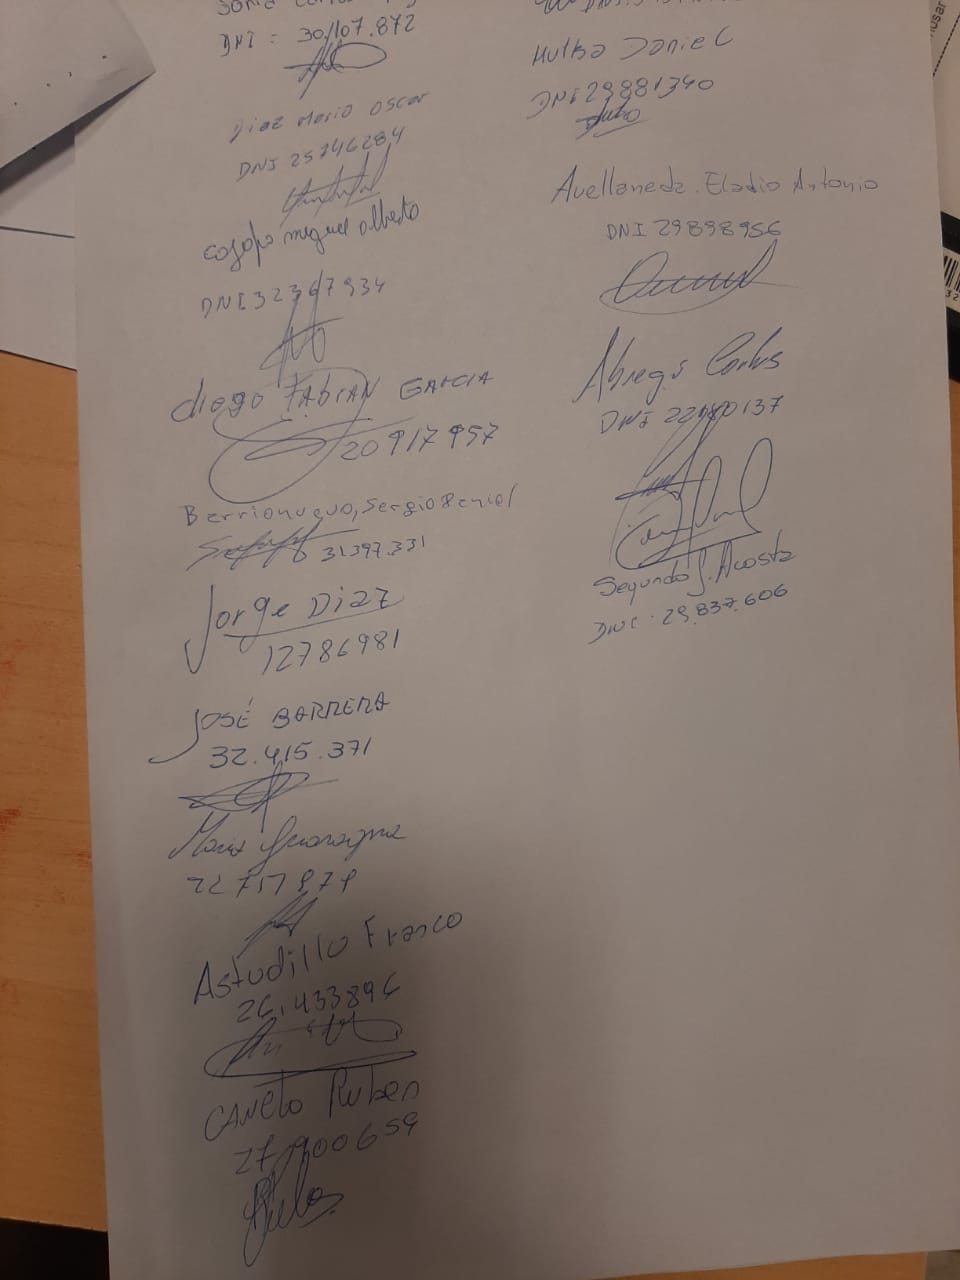 DNI = 30.107.872
Diaz Mario Oscar
DNI 25746284
miguel Alberto
DNI. 32367934
diego FABIAN GARCIA
20917957
Barrionuevo, Sergio Daniel
31.397.331
Jorge Diaz
12786981
JOSÉ BARRERA
32.415.371
Astudillo Franco
26.433896
CANeto Ruben
27900659
Daniel
DNI 29881340
Avellaneda. Eladio Antonio
DNI 29898956
Abregú Carlos
DNI
Segundo J. Acosta
DNI. 29.837.606